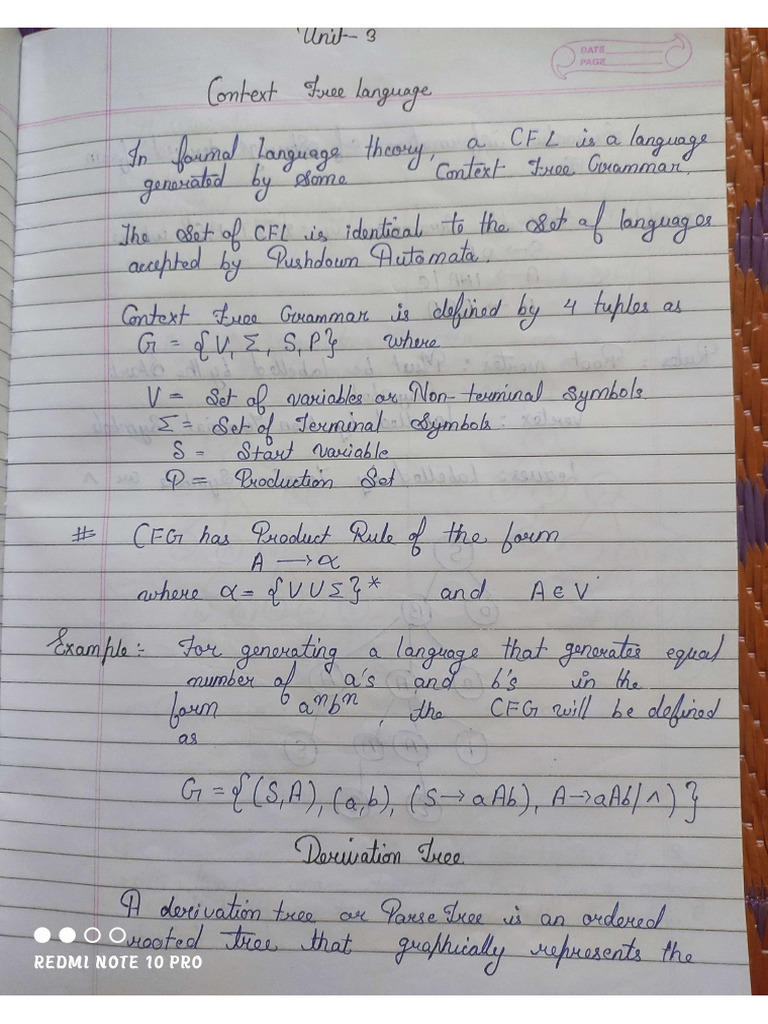 Unit-3
DATE
PAGE
Context Free Language
In formal Language theory, a CFL is a language
generated by some Context Free Grammar.
The Set of CFL is identical to the Set of languages
accepted by Pushdown Automata.
Context Free Grammar is defined by 4 tuples as
G = {V, Σ, S, P} where
V = Set of variables or Non-terminal Symbols
Σ = Set of Terminal Symbols
S = Start variable
P = Production Set
# CFG has Product Rule of the form
A → α
where α = {V U Σ}* and A ∈ V
Example:- For generating a language that generates equal
number of a's and b's in the
form aⁿbⁿ, the CFG will be defined
as
G = {(S,A), (a,b), (S→aAb), A→aAb|^)}
Derivation Tree
A derivation tree or Parse Tree is an ordered
rooted tree that graphically represents the
REDMI NOTE 10 PRO